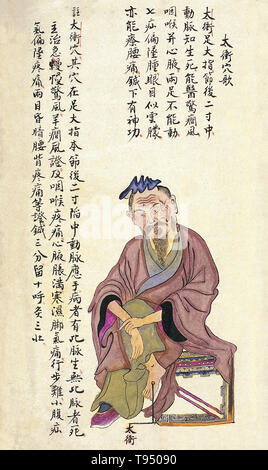 太衝穴歌
太衝足大指節後二寸中
動脉知生死能醫驚癇風
咽喉并心脹兩足不能動
七疝偏墜腫眼目似雲朦
亦能療腰痛鍼下有神功
註太衝穴其穴在足大指本節後二寸陷中動脉應手病者有此脉生無此脉者死
主治急慢驚風羊癇風證及咽喉疼痛心腹脹滿寒濕脚氣痛行步難小腹疝
氣偏墜疼痛兩目昏暗腰背疼痛等證鍼三分留十呼灸三壯
太衝
alamy stock photo